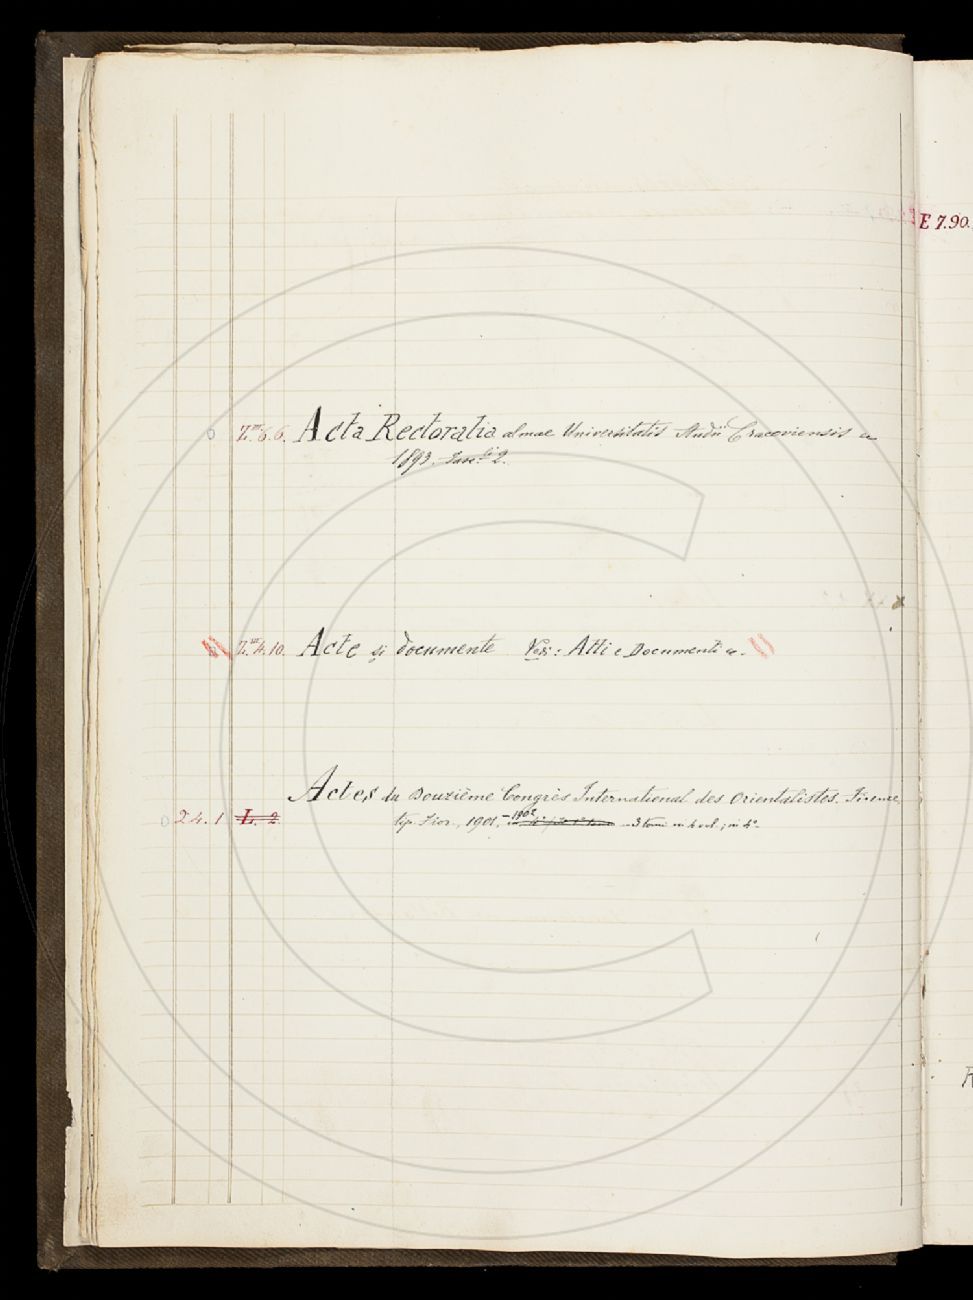 E 7.90.
Z.III.6.6. Acta Rectoralia almae Universitatis Studii Cracoviensis a
1893.
Z.III.4.10. Acte și documente Vedi: Atti e Documenti
Actes du Douzième Congrès International des Orientalistes. Firenze,
24.1 L. 2 tip. Fior., 1901,-1902 3 tomi in 4 vol., in 4º